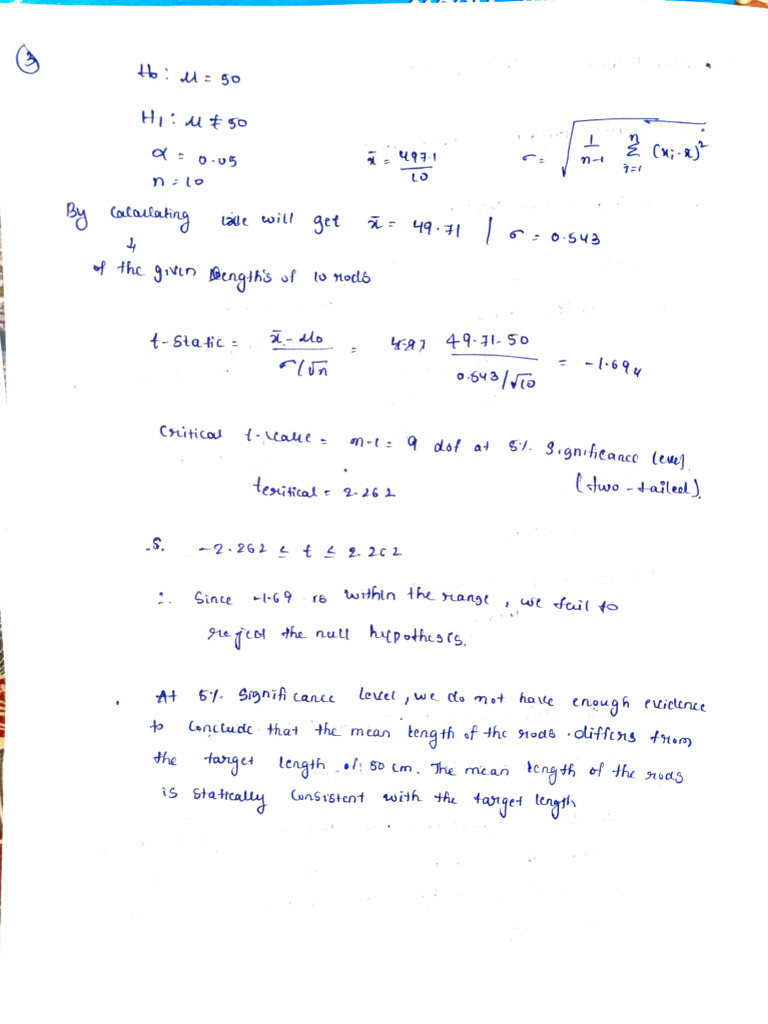 3
H0: μ = 50
H1: μ ≠ 50
α = 0.05
n = 10
x̄ = 497.1 / 10
σ = √( 1/(n-1) Σ_{i=1}^{n} (xi - x)² )
By calculating we will get x̄ = 49.71 | σ = 0.543
↳
of the given lengths of 10 rods
t-Static = (x̄ - μ0) / (σ/√n) = (49.71-50) / (0.543/√10) = -1.69
Critical t-value = n-1 = 9 dof at 5% Significance level
(two-tailed).
tcritical = 2.262
-2.262 ≤ t ≤ 2.262
∴ Since -1.69 is within the range, we fail to
reject the null hypothesis.
. At 5% Significance level, we do not have enough evidence
to conclude that the mean length of the rods differs from
the target length of 50 cm. The mean length of the rods
is statically consistent with the target length